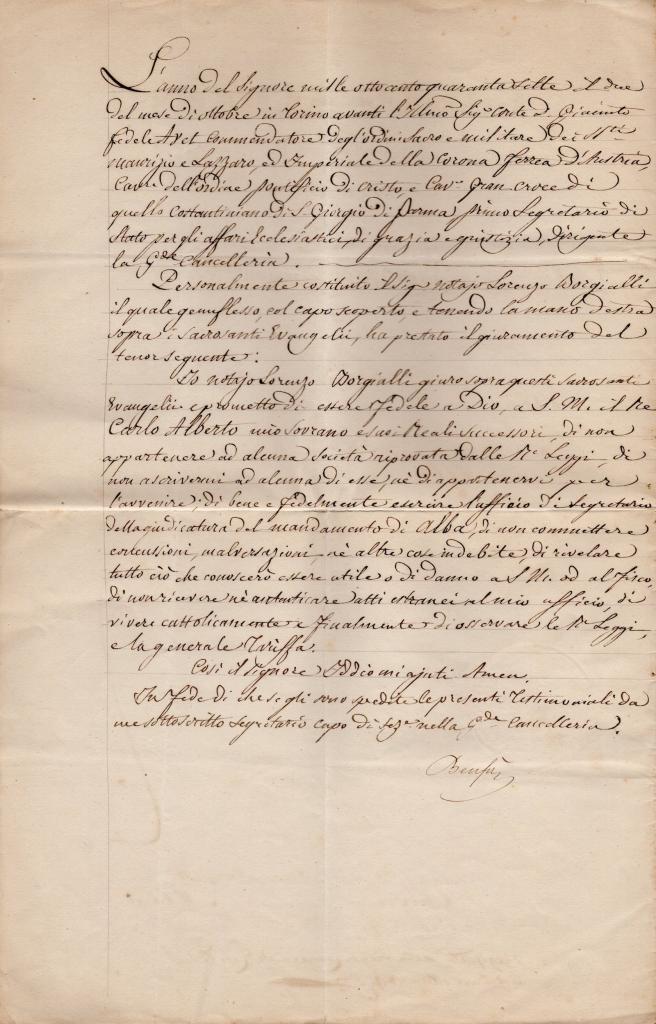 L'anno del Signore mille ottocento quaranta sette il due
del mese di ottobre in Torino avanti l'Ill.mo Sig. Conte D. Giacinto
Fedele Avet Commendatore degl'ordini Sacro e militare dei S.ti
Maurizio e Lazzaro, ed Imperiale della Corona ferrea d'Austria,
Cav.re dell'ordine pontificio di Cristo, e Cav.re Gran croce di
quello Costantiniano di S. Giorgio di Parma primo Segretario di
Stato per gli affari Ecclesiastici, di grazia e giustizia, dirigente
la G.de Cancelleria.
Personalmente costituito il Sig. notajo Lorenzo Borgialli
il quale genuflesso, col capo scoperto, e tenendo la mano destra
sopra i sacrosanti Evangelii, ha prestato il giuramento del
tenor seguente:
Io notajo Lorenzo Borgialli giuro sopra questi sacrosanti
Evangelii e prometto di essere fedele a Dio, a S. M. il Re
Carlo Alberto mio sovrano e suoi Reali successori, di non
appartenere ad alcuna società riprovata dalle R.e Leggi, di
non ascrivermi ad alcuna di esse, nè di appartenervi per
l'avvenire; di bene e fedelmente esercire l'ufficio di Segretario
della giudicatura del mandamento di Alba, di non commettere
concussioni, malversazioni, nè altre cose indebite di rivelare
tutto ciò che conoscerò essere utile o di danno a S. M. od al fisco,
di non ricevere nè autenticare atti estranei al mio ufficio, di
vivere cattolicamente e finalmente di osservare le R.e Leggi,
e la generale Tariffa.
Così il Signore Iddio mi ajuti Amen.
In fede di che se gli sono spedite le presenti Testimoniali da
me sottoscritto Segretario capo di sez.e nella G.de Cancelleria.